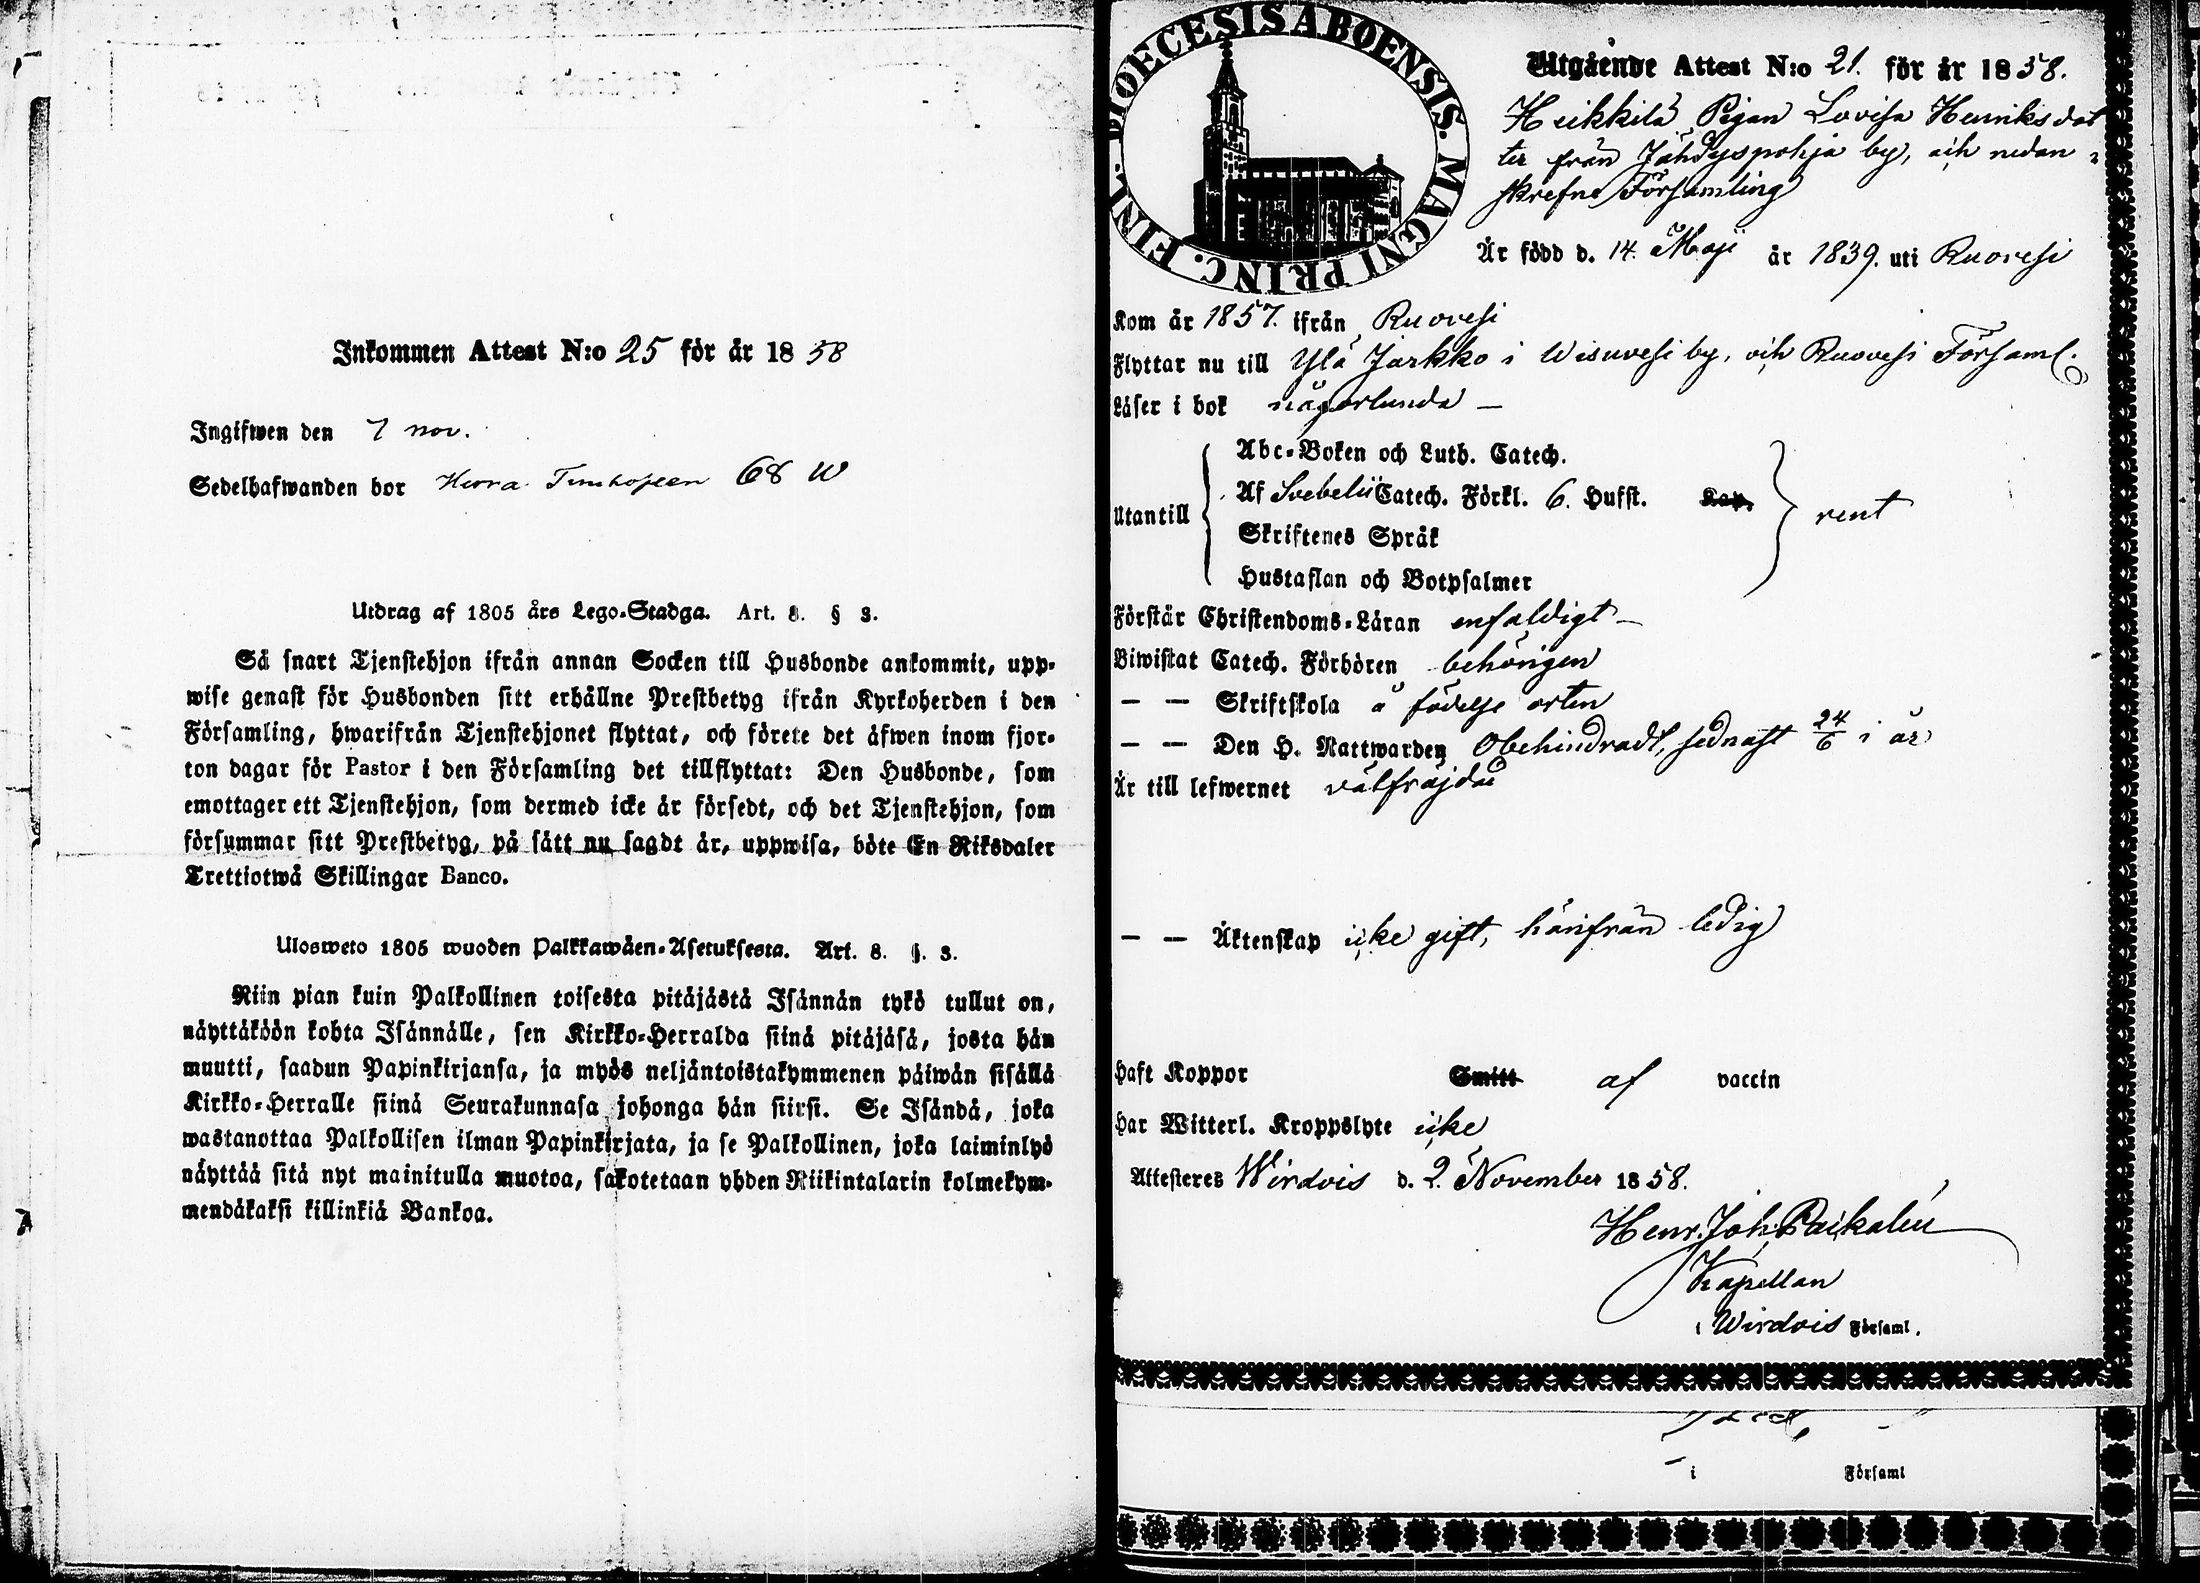 Inkommen Attest N:o 25 för år 1858
Ingifwen den 7 nov.
Sedelhafwanden bor 68 W
Utdrag af 1805 års Lego-Stadga. Art. 8. § 3.
Så snart Tjenstehjon ifrån annan Socken till Husbonde ankommit, upp-
wise genast för Husbonden sitt erhållne Prestbetyg ifrån Kyrkoherden i den
Församling, hwarifrån Tjenstehjonet flyttat, och förete det äfwen inom fjor-
ton dagar för Pastor i den Församling det tillflyttat: Den Husbonde, som
emottager ett Tjenstehjon, som dermed icke är försedt, och det Tjenstehjon, som
försummar sitt Prestbetyg, på sätt nu sagdt är, uppwisa, böte En Riksdaler
Trettiotwå Skillingar Banco.
Ulosweto 1805 wuoden Palkkawäen-Asetuksesta. Art. 8. §. 3.
Niin pian kuin Palkollinen toisesta pitäjästä Isännän tykö tullut on,
näyttäköön kohta Isännälle, sen Kirkko-Herralda siinä pitäjäsä, josta hän
muutti, saadun Papinkirjansa, ja myös neljäntoistakymmenen päiwän sisällä
Kirkko-Herralle siinä Seurakunnasa johonga hän siirsi. Se Isändä, joka
wastanottaa Palkollisen ilman Papinkirjata, ja se Palkollinen, joka laiminlyö
näyttää sitä nyt mainitulla muotoa, sakotetaan yhden Riikintalarin kolmekym-
mendäkaksi killinkiä Bankoa.
DIOECESIS ABOENSIS. MAGNI PRINC. FINL.
Utgående Attest N:o 21. för år 1858.
Heikkilä Pigan Lovisa Henriksdot
ter från Jähdyspohja by, och nedan-
skrefne Församling
Är född d. 14. Maji år 1839. uti Ruovesi
Kom år 1857. ifrån Ruovesi
Flyttar nu till Ylä Jarkko i Wisuvesi by, och Ruovesi Församl.
Läser i bok någorlunda —
Utantill
Abc-Boken och Luth. Catech.
Af Svebelii Catech. Förkl. 6. Hufst. Kap. rent
Skriftenes Språk
Hustaflan och Botpsalmer
Förstår Christendoms-Läran enfaldigt —
Biwistat Catech. Förhören behörigen
— — Skriftskola å födelse orten
— — Den H. Nattwarden Obehindradt, sednast 24/6 i år
Är till lefwernet välfräjdad
— — Äktenskap icke gift, härifrån ledig
Haft Koppor Smitt af vaccin
Har Witterl. Kroppslyte icke
Attesteres Wirdois d. 2. November 1858.
Henr. Joh. Paikalén
Kapellan
i Wirdois Församl.
i Församl